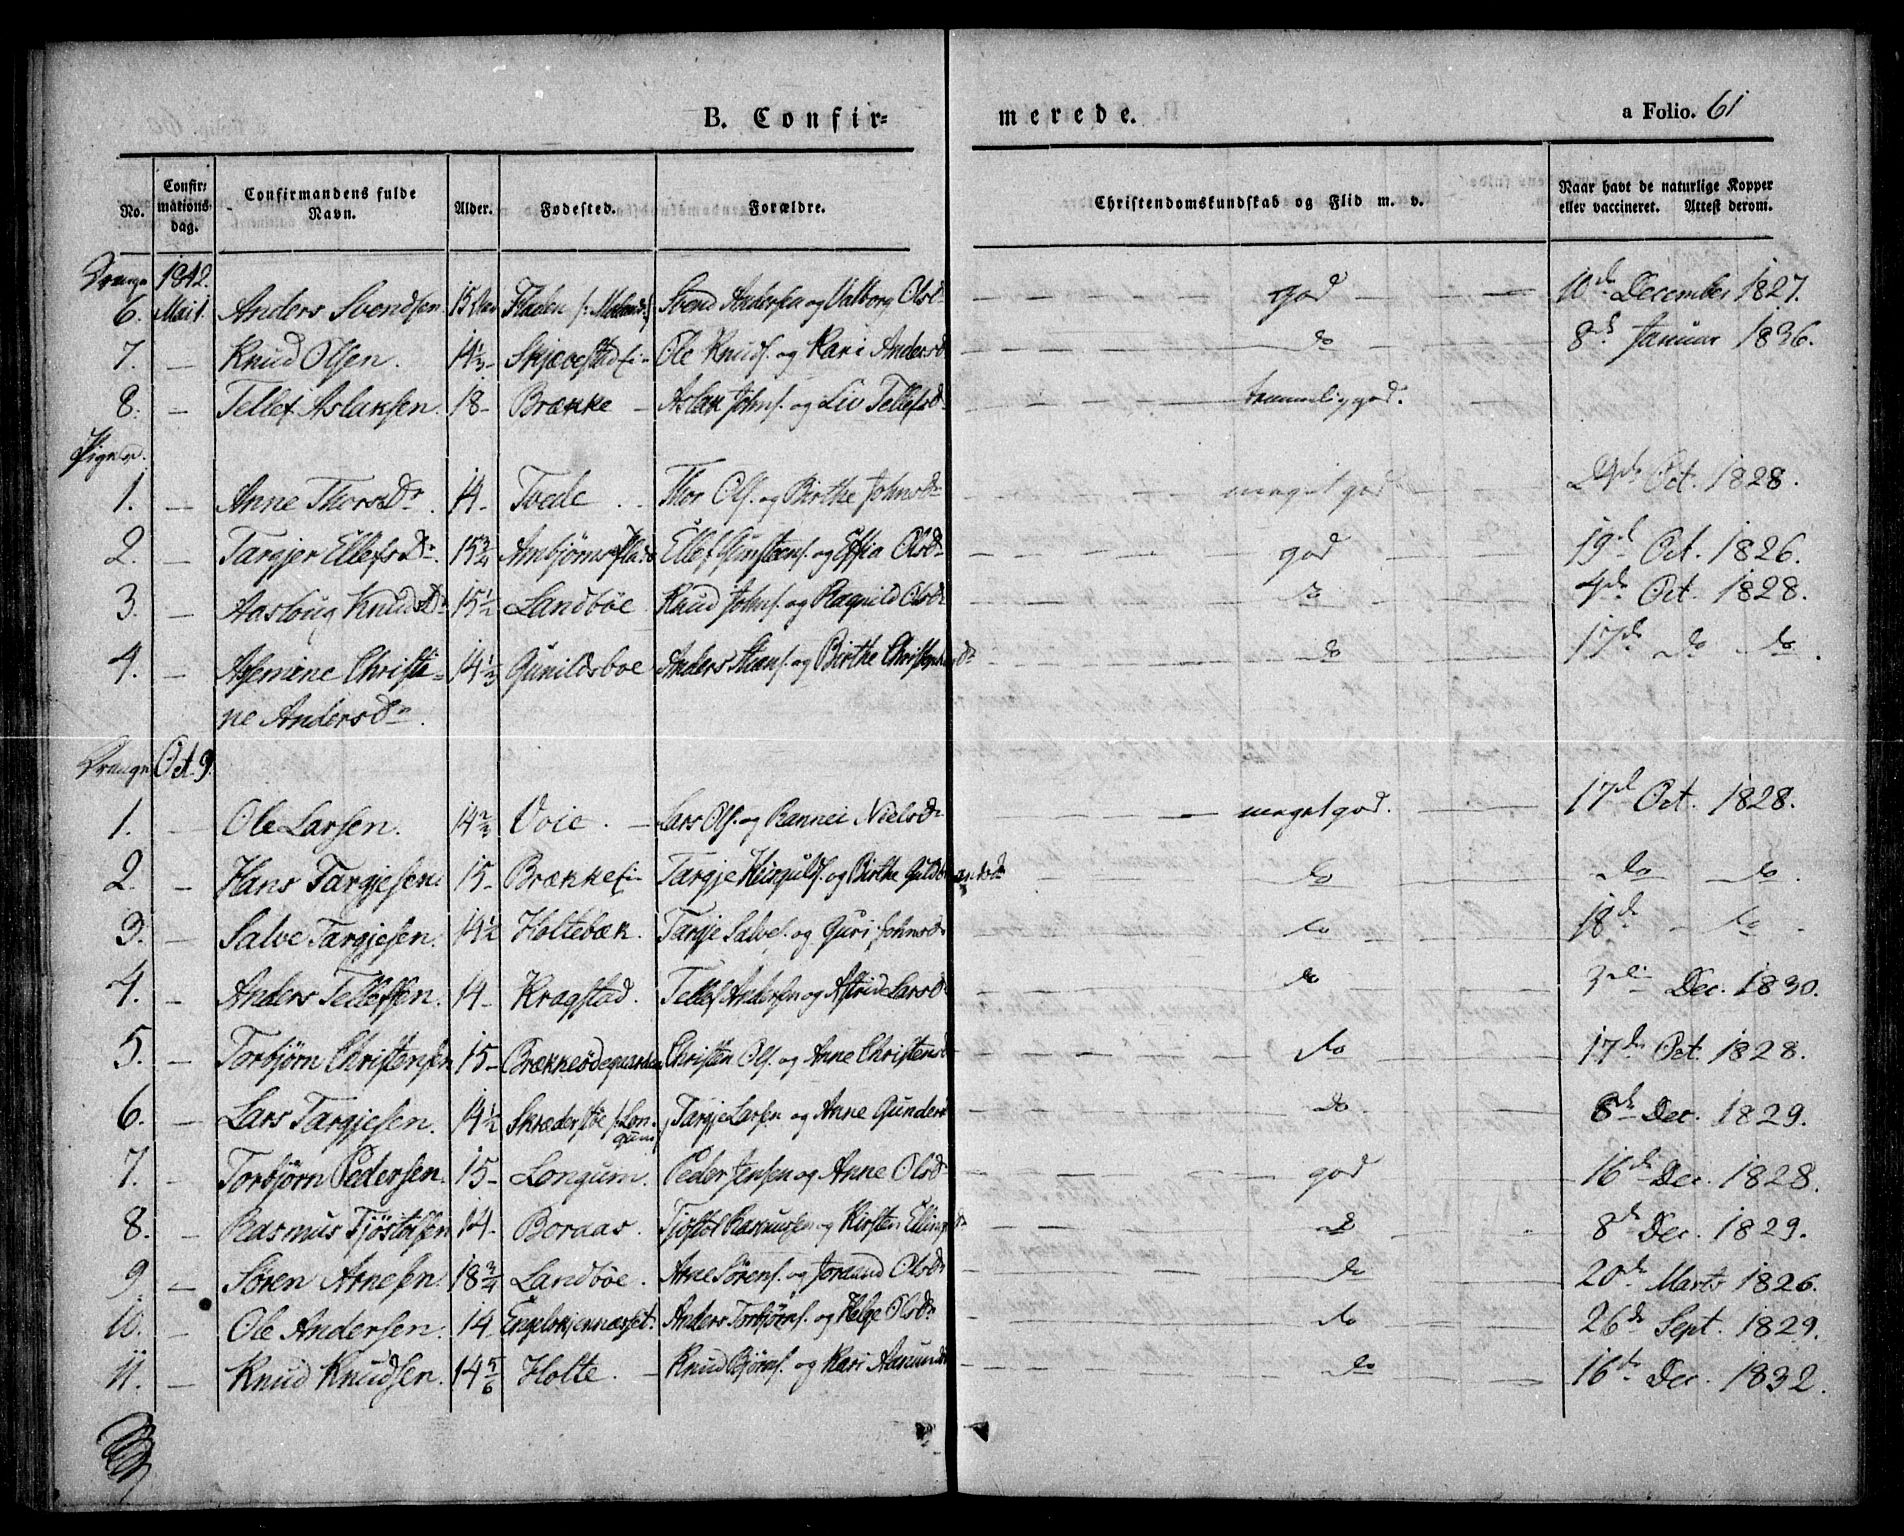 B. Confir=
merede.
a Folio. 61
No. Confir= mations= dag. Confirmandens fulde Navn. Alder. Fødested. Forældre. Christendomskundskab og Flid m. v. Naar havt de naturlige Kopper eller vaccineret. Attest derom.
Drenge 1842.
6. Mai 1. Anders Svendsen 15 Aar Svend Andersen og Valborg Olsdr god 10de December 1827.
7. — Knud Olsen. 14 1/3 - Skjævestad Ei - Ole Knuds. og Kari Andersd do 8de Januar 1836.
8. — Tellef Aslaksen. 18 - Brække - Aslak Johns. og Liv Tellefsd temmelig god.
Piger.
1. — Anne Thorsdr. 14 - Tvede Thor Ols. og Birthe Johnsdr meget god Oct. 1828.
2. — Targjer Ellefsdr. 15 3/4 Ellef og Olsdr god 19de Oct. 1826.
3. — Aasloug Knudsdr 15 1/2 Landbøe Knud Johns. og Ragnild Olsd do 4de Oct. 1828.
4. — Christi= 14 1/3 Gunildsboe Anders og Birthe do 17de do do.
ne Andersdr.
Drenge Oct. 9.
1. — Ole Larsen. 14 2/3 Voie. — Lars Ols. og Rannei Nielsdr meget god. 17de Oct. 1828.
2. — Hans Targjesen. 15 - Brække Ei - Targje og Birthe Guldbrandsdr do do do.
3. — Salve Targjesen. 14 1/2 Holtebæk. Targje Salves. og Guri Johnsdr do 18de do
4. — Anders Tellefsen. 14 - Kragstad. Tellef Andersen og Astrid Larsd do 3die Dec. 1830.
5. — Torbjørn Christensen 15 - Christen Ols. og Anne Christensd do 17de Oct. 1828.
6. — Lars Targjesen. 14 1/2 Skræderstøe /: Lon= gum Targje Larsen og Anne Gunders do 8de Dec. 1829.
7. — Torbjørn Pedersen. 15 - Longum. Peder Jensen og Anne Olsdr god 16de Dec. 1828.
8. — Rasmus Tjøstolsen 14 - Boraas. Tjøstol Rasmussen og Kirsten Ellingsdr do 8de Dec. 1829.
9. — Søren Arnesen. 18 3/4 Landbøe. Arne Sørens. og Joraand Olsdr do 20de Marts 1826.
10. — Ole Andersen. 14 Anders Torbjørns. og Helge Olsdr do 26de Sept. 1829.
11. — Knud Knudsen. 14 5/6 Holte. — Knud Bjørns. og Kari Aamundsd do 16de Dec. 1832.